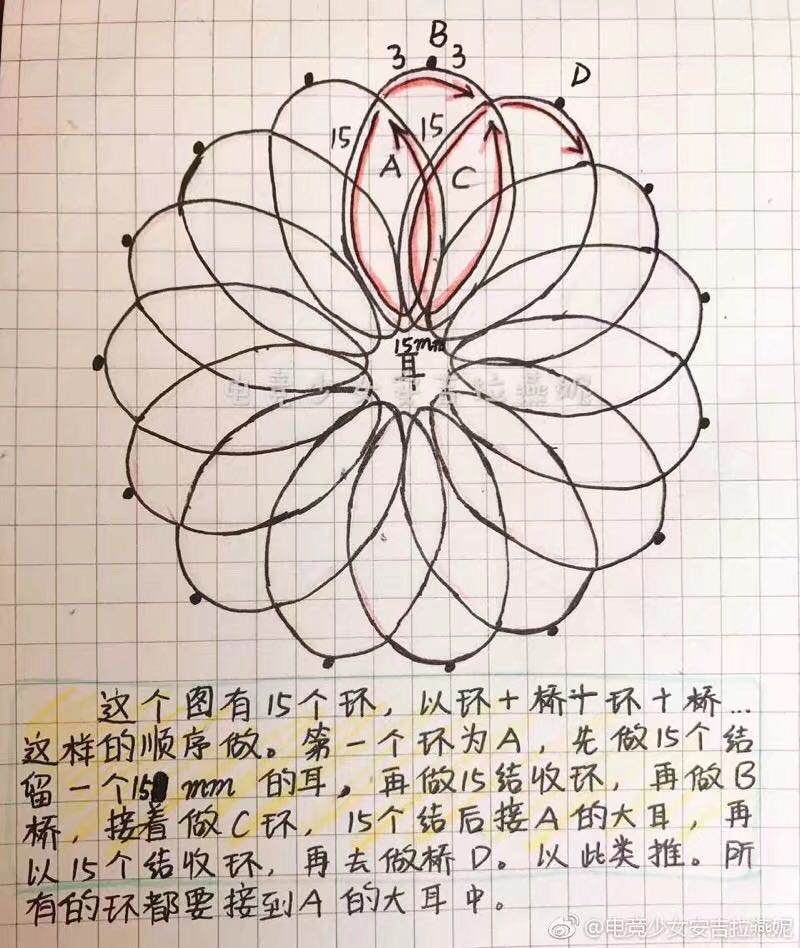 B
3 3
D
15 15
A C
15mm
耳
电竞少女安吉拉燕妮
这个图有15个环，以环+桥+环+桥...
这样的顺序做。第一个环为A，先做15个结
留一个15 mm 的耳。再做15结收环，再做B
桥，接着做C环，15个结后接A的大耳，再
以15个结收环，再去做桥D。以此类推。所
有的环都要接到A的大耳中。
@电竞少女安吉拉燕妮